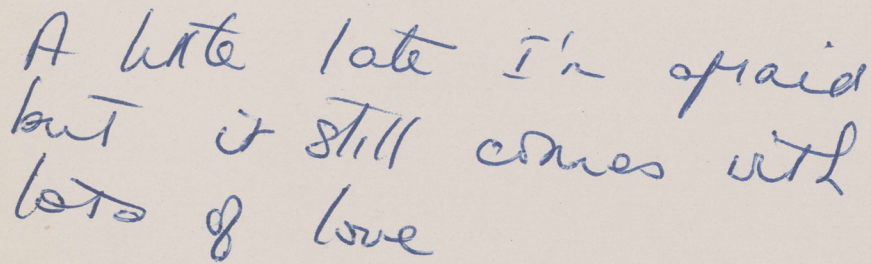 A little late I'm afraid
but it still comes with
lots of love